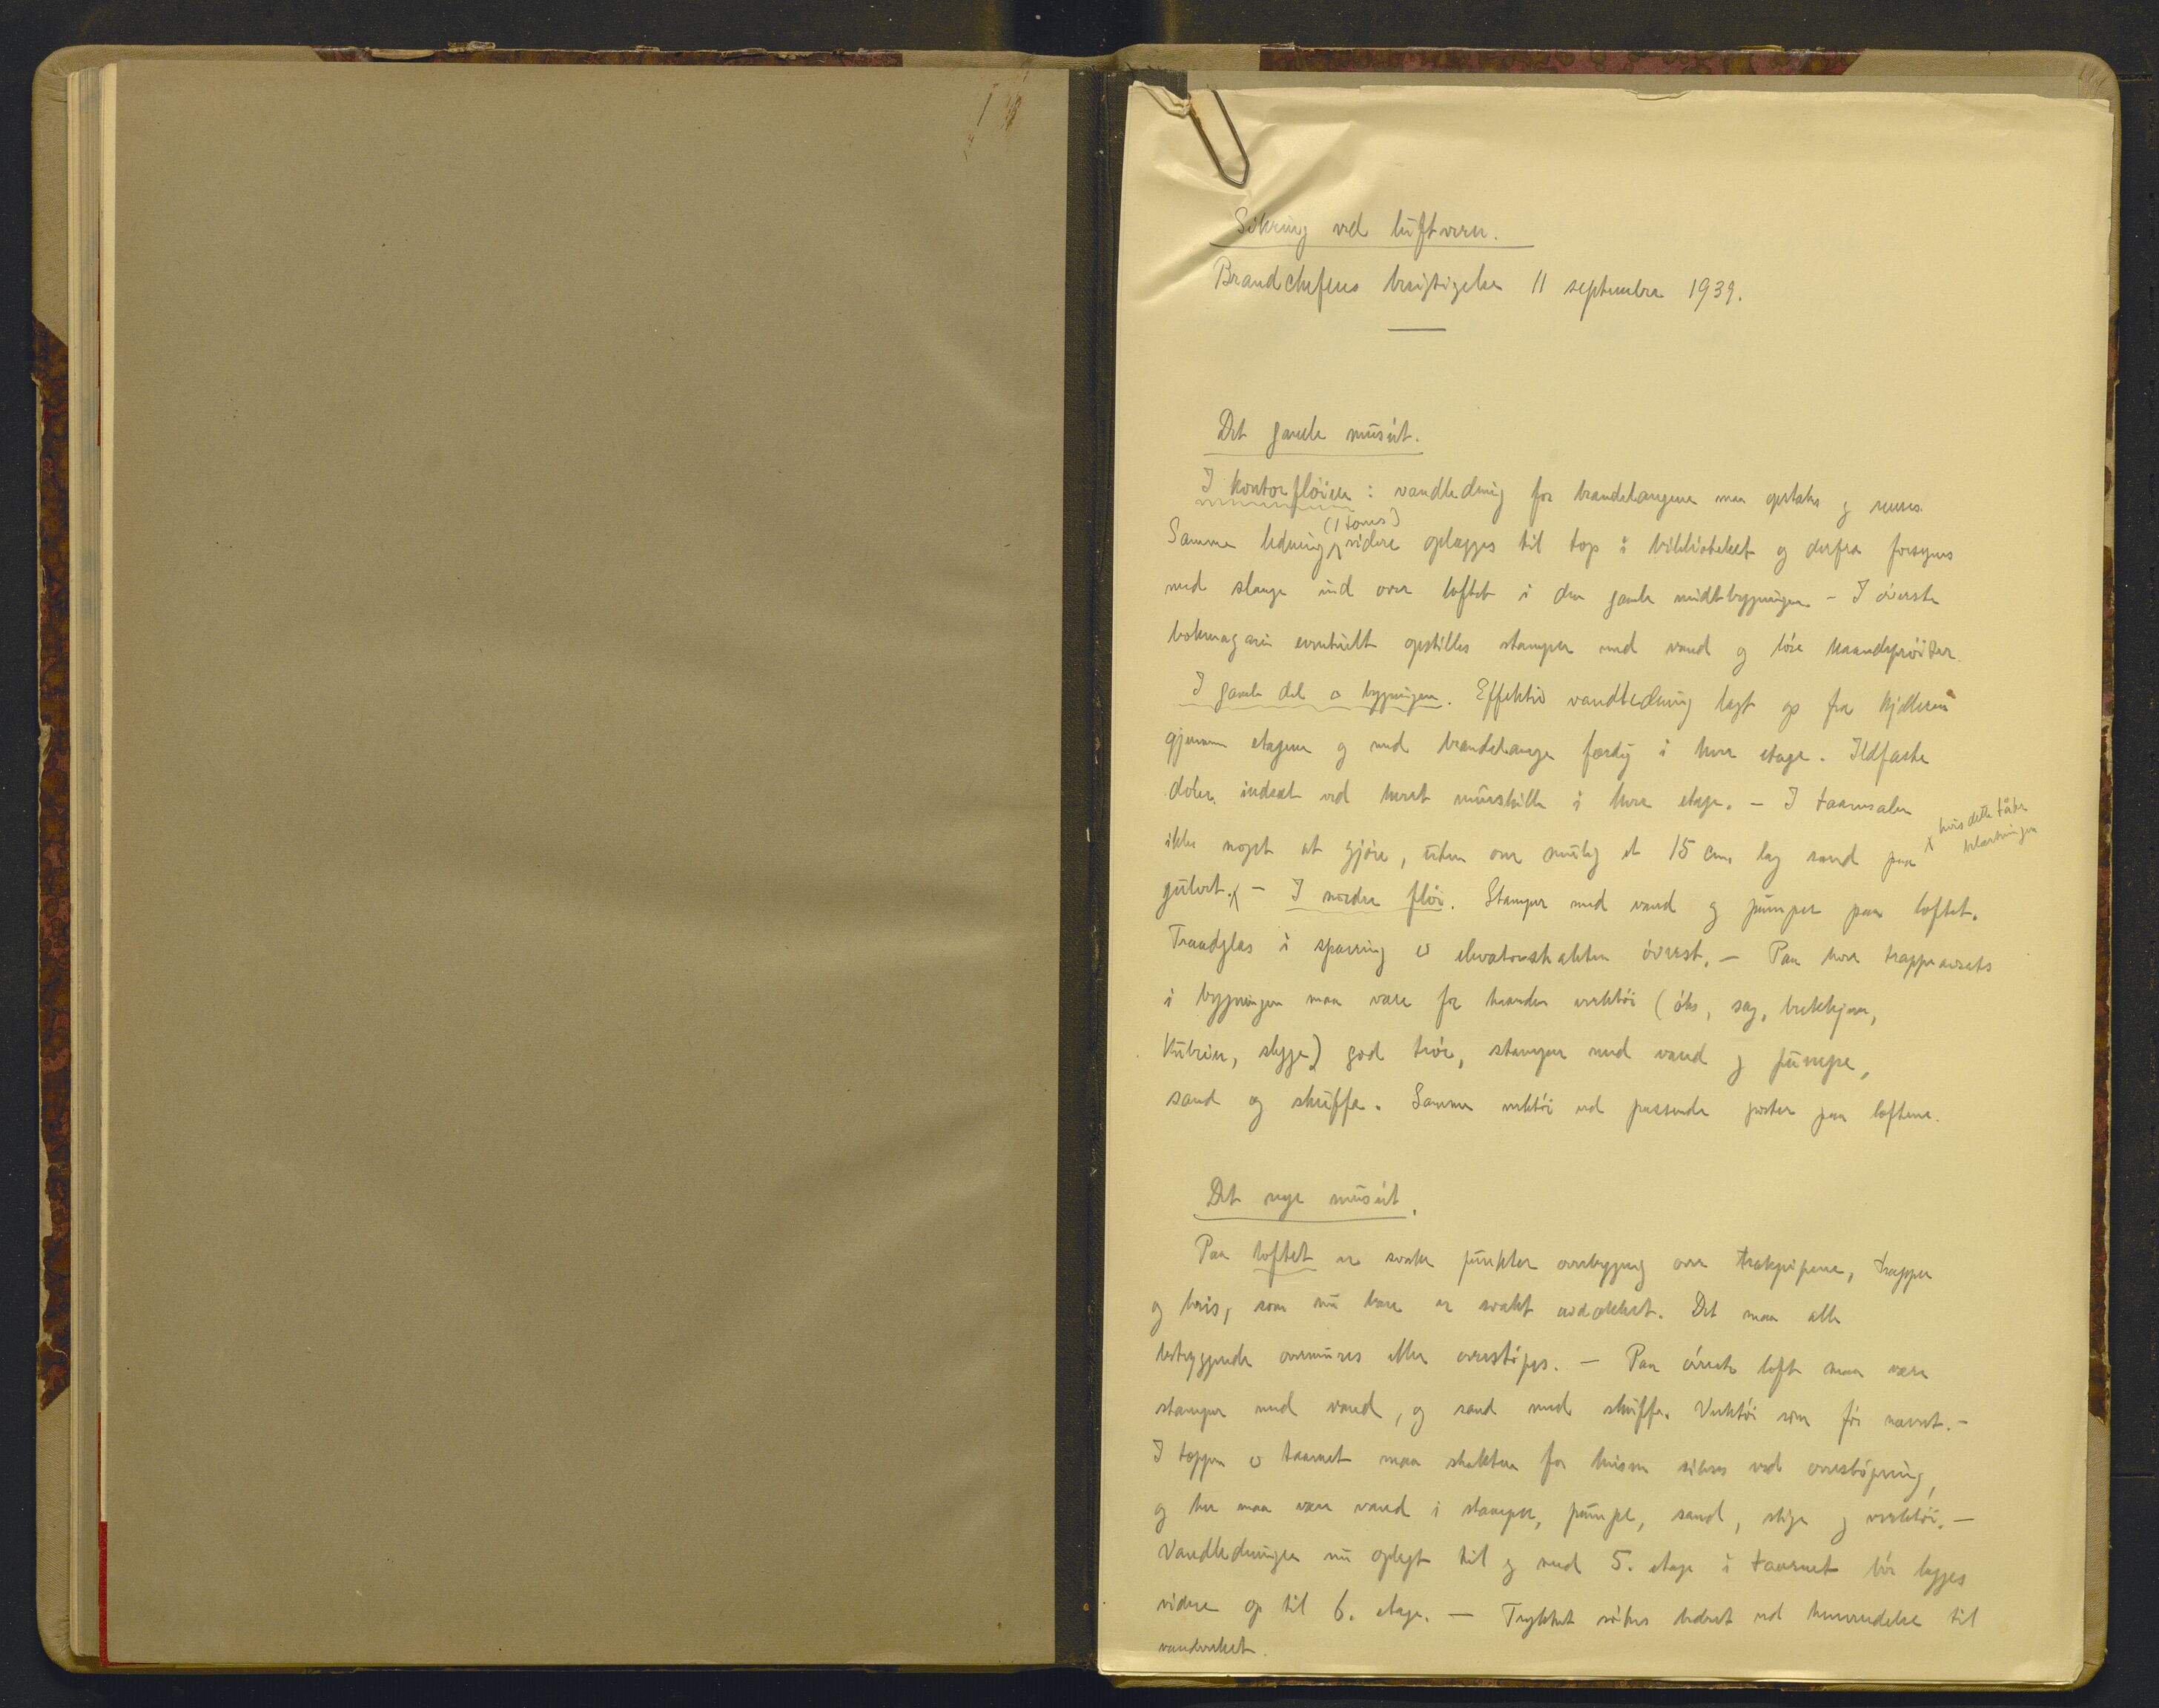 Sikring ved luftvern.
Brandchefens besigtigelse 11 septembre 1939.
Det gamle muséet.
I kontorfløien : vandledning for brandslangene maa opstakes og renses.
(1 toms)
Samme ledning videre oplægges til top i biblioteket og derfra forsynes
med slange ind over loftet i den gamle midtbygningen – I øverste
bokmagasin eventuelt opstilles stamper med vand og løse haandsprøiter
I gamle del av bygningen. Effektiv vandledning lagt op fra kjelleren
gjennem etagene og med brandslange færdig i hver etage. Ildfaste
dører indsat ved hvert murskille i hver etage. – I taarnsalen
ikke noget at gjøre, uten om mulig et 15 cm. lag sand paa
x hvis dette tåler
belastningen
gulvet.x – I nordre fløi. Stamper med vand og pumper paa loftet.
Traadglas i sparring av elevatorsjakten øverst. – Paa hver trappeavsats
i bygningen maa være for haanden verktøi (øks, sag, brekkjern,
kubein, slegge) god trøie, stamper med vand og pumpe,
sand og skuffe. Samme verktøi ved passende poster paa loftene.
Det nye muséet.
Paa loftet er svake punkter overbygning over trækpipene, trapper
og heis, som nu bare er svakt avdækket. Det maa alle
betryggende overmures eller overstøpes. – Paa øverste loft maa være
stamper med vand, og sand med skuffe. Verktøi som før nævnt. –
I toppen av taarnet maa sjakten for heisen sikres ved overstøpning,
og her maa være vand i stamper, pumpe, sand, stige og verktøi. –
Vandledningen nu oplagt til og med 5. etage i taarnet bør lægges
videre op til 6. etage. – Trykket søkes bedret ved henvendelse til
vandverket.